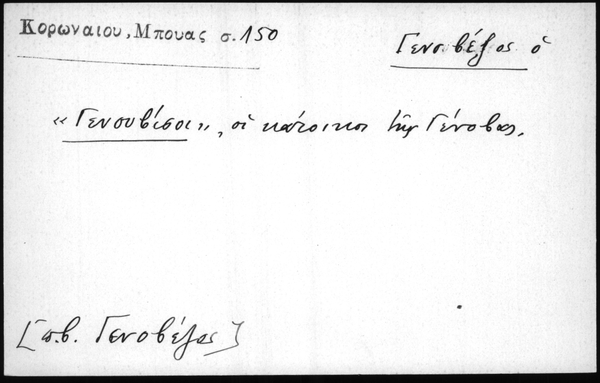 Κορωναιου, Μπουας σ. 150
Γενουβέζος ὁ
«Γενουβίσοι», οἱ κάτοικοι τῆς Γένοβας.
[π.β. Γενοβέζος]